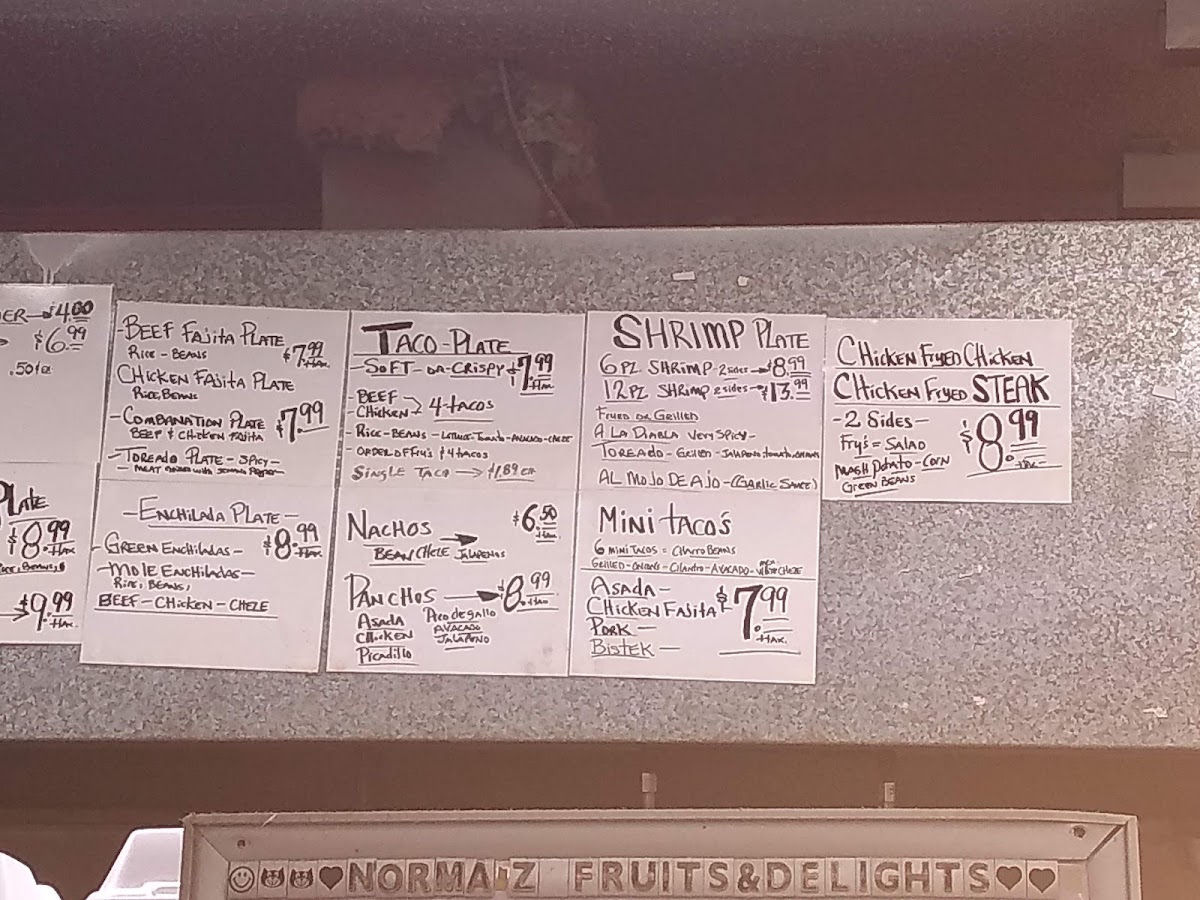 $4.00
$6.99
.50¢
PLATE
$8.99
+tax
$9.99
+tax
-BEEF FAJITA PLATE
RICE - BEANS
$7.99
+tax.
CHICKEN FAJITA PLATE
RICE, BEANS
-COMBANATION PLATE
BEEF & CHICKEN FAJITA
$7.99
-TOREADO PLATE - SPICY-
-ENCHILADA PLATE-
-GREEN ENCHILADAS-
$8.99
+tax.
-MOLE ENCHILADAS-
RICE, BEANS,
BEEF-CHICKEN-CHEZE
TACO-PLATE
-SOFT-OR-CRISPY
$7.99
+tax
-BEEF
-CHICKEN> 4-TACOS
-RICE-BEANS-LETTUCE-TOMATO-AVACADO-CHEZE
-ORDER OF FRY'S & 4 TACOS
SINGLE TACO → $1.89 EA
NACHOS → $6.50
+tax
BEAN CHEZE JALAPENOS
PANCHOS → $8.99
+tax
ASADA
CHICKEN
PICADILLO
PICO DE GALLO
AVACADO
JALAPEÑO
SHRIMP PLATE
6 PZ SHRIMP-2 sides → $8.99
12 PZ SHRIMP 2 sides → $13.99
FRYED OR GRILLED
A LA DIABLA VERY SPICY-
TOREADO-GRILLED-JALAPENO, TOMATO,
AL MOJO DE AJO-(GARLIC SAUCE)
MINI TACO'S
6 MINI TACOS = CHARRO BEANS
GRILLED-ONIONS-CILANTRO-AVACADO-
ASADA-
CHICKEN FAJITA
PORK-
BISTEK-
$7.99
+tax.
CHICKEN FRYED CHICKEN
CHICKEN FRYED STEAK
-2 SIDES-
FRY'S = SALAD
MASH POTATO-CORN
GREEN BEANS
$8.99
+tax.
NORMA'Z FRUITS&DELIGHTS